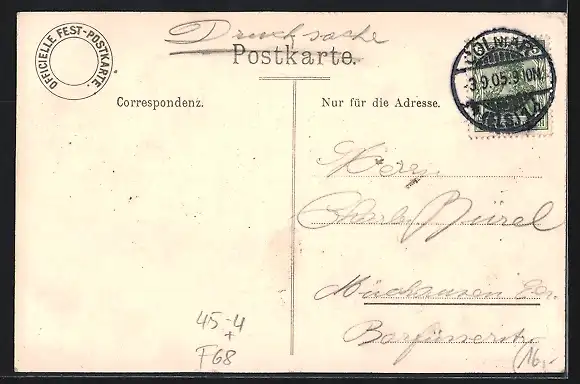 OFFICIELLE FEST-POSTKARTE.
Drucksache
Postkarte.
COLMAR
3.9.05.
(ELS.)
Correspondenz.
Nur für die Adresse.
Herrn
Charles
Mülhausen
Barfüsserstr.
45-4
+
F68
16,-